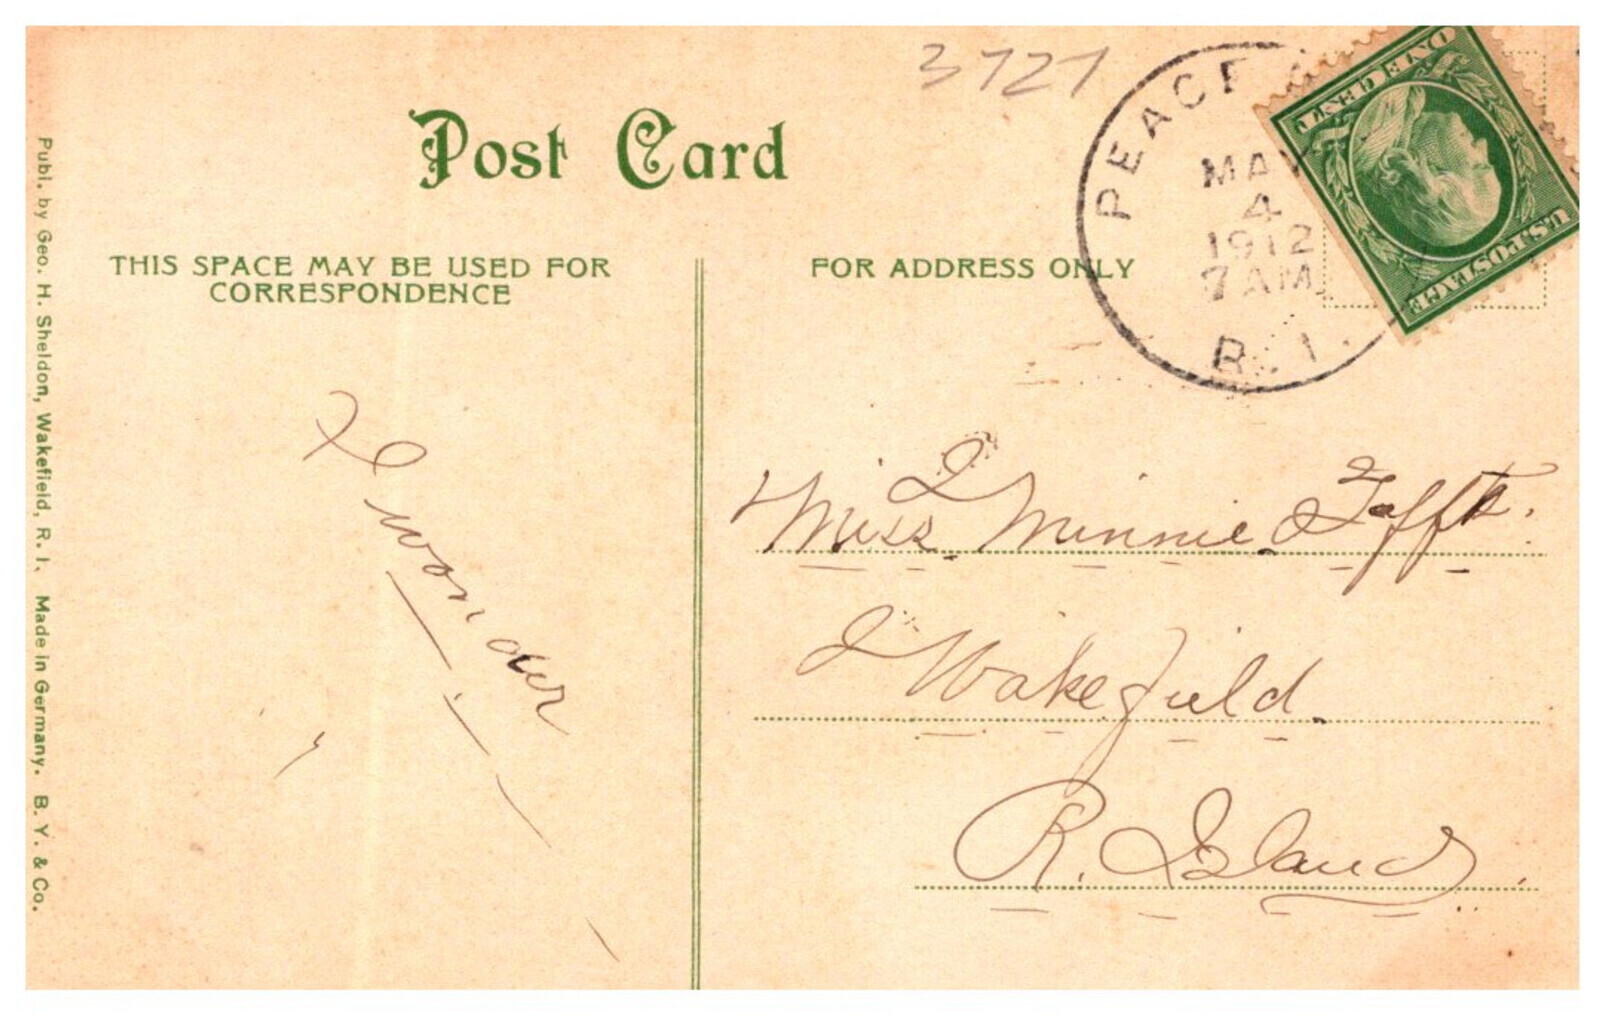 3727
Post Card
PEACE
MAY
4
1912
7 AM
R. I.
ONE CENT
U.S. POSTAGE
THIS SPACE MAY BE USED FOR
CORRESPONDENCE
FOR ADDRESS ONLY
I wonder
Miss Minnie Tefft.
Wakefield.
R. Island.
Publ. by Geo. H. Sheldon, Wakefield, R. I. Made in Germany. B. Y. & Co.